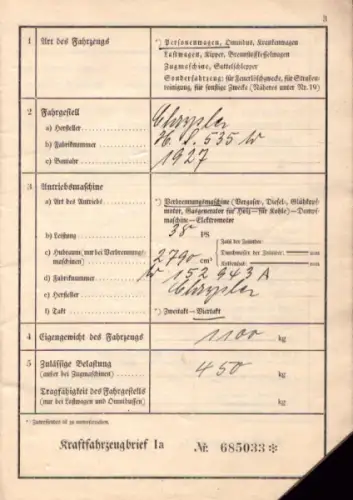 3
1 Art des Fahrzeugs
*) Personenwagen, Omnibus, Krankenwagen
Lastwagen, Kipper, Brennstoffkesselwagen
Zugmaschine, Sattelschlepper
Sonderfahrzeug: für Feuerlöschzwecke, für Straßen-
reinigung, für sonstige Zwecke (Näheres unter Nr. 19)
2 Fahrgestell
a) Hersteller Chrysler
b) Fabriknummer H. S. 535 W
c) Baujahr 1927
3 Antriebsmaschine
a) Art des Antriebs *) Verbrennungsmaschine (Vergaser-, Diesel-, Glühkopf-
motor, Gasgenerator für Holz—für Kohle)—Dampf-
maschine—Elektromotor
b) Leistung 38 PS
c) Hubraum (nur bei Verbrennungs-
maschinen) 2790 cm³
Zahl der Zylinder:
Durchmesser der Zylinder: mm
Kolbenhub: mm
d) Fabriknummer W 152943 A
e) Hersteller Chrysler
f) Takt *) Zweitakt—Viertakt
4 Eigengewicht des Fahrzeugs 1100 kg
5 Zulässige Belastung
(außer bei Zugmaschinen) 450 kg
Tragfähigkeit des Fahrgestells
(nur bei Lastwagen und Omnibussen) kg
*) Zutreffendes ist zu unterstreichen.
Kraftfahrzeugbrief Ia № 685033 *